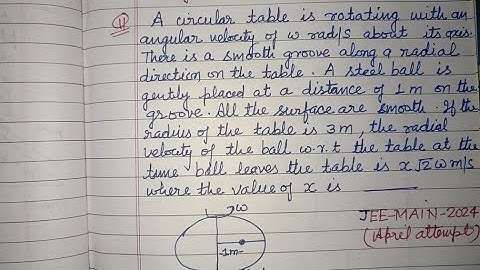 11 A circular table is rotating with an
angular velocity of ω rad/s about its axis.
There is a smooth groove along a radial
direction on the table. A steel ball is
gently placed at a distance of 1m on the
groove. All the surface are smooth. If the
radius of the table is 3m, the radial
velocity of the ball w.r.t the table at the
time ball leaves the table is x√2 ω m/s
where the value of x is ______
JEE-MAIN-2024
(April attempt)
ω
1m